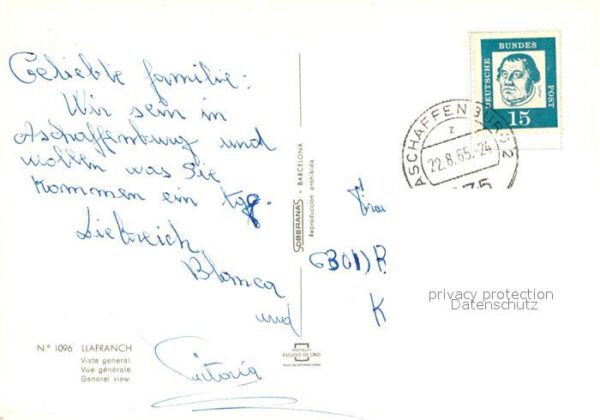 Geliebte familie:
Wir sein in
Aschaffenburg und
wollen was Sie
kommen ein tag.
Liebreich
Blanca
und
Victoria
Nº 1096 LLAFRANCH
Vista general.
Vue générale.
General view.
SOBERANAS - BARCELONA
Reproducción prohibida
POSTALES
ESCUDO DE ORO
DEUTSCHE
BUNDES
POST
15
ASCHAFFENBURG 2
z
22.8.65.-24
Frau
6301 R
K
privacy protection
Datenschutz